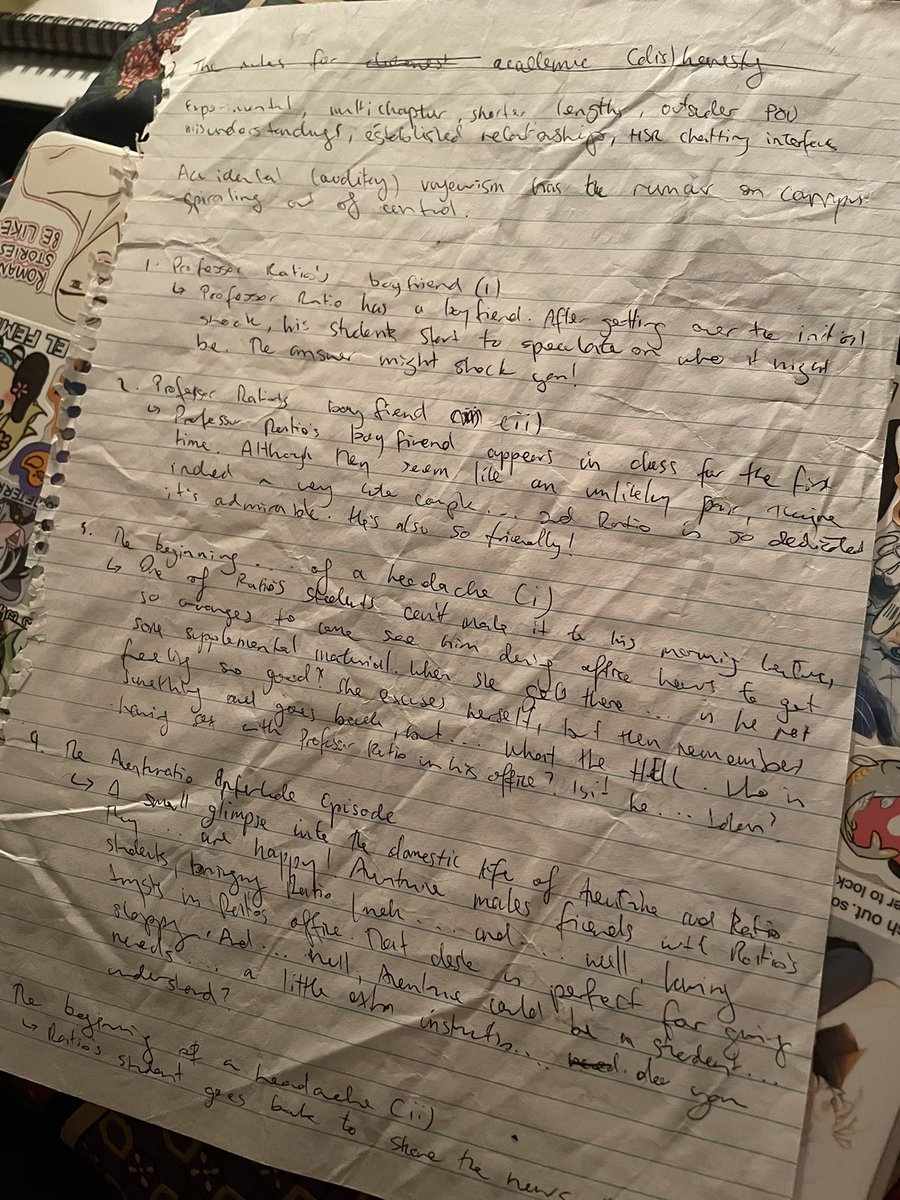 The rules for dishonest academic (dis)honesty
Experimental, multichapter, shorter lengths, outsider POV
misunderstandings, established relationships, HSR chatting interface
Accidental (auditory) voyeurism has the rumor on campus
spiraling out of control.
1. Professor Ratio's boyfriend (i)
↳ Professor Ratio has a boyfriend. After getting over the initial
shock, his students start to speculate on who it might
be. The answer might shock you!
2. Professor Ratio's boyfriend (ii)
↳ Professor Ratio's boyfriend appears in class for the first
time. Although they seem like an unlikely pair, they're
indeed a very cute couple... and Ratio is so dedicated
it's admirable. He's also so friendly!
3. The beginning... of a headache (i)
↳ One of Ratio's students can't make it to his morning lecture,
so arranges to come see him during office hours to get
some supplemental material. When she gets there... is he not
feeling so good? She excuses herself, but then remembers
something and goes back, but... what the HELL. Who is
having sex with Professor Ratio in his office? Isn't he... taken?
4. The Aventuratio Interlude Episode
↳ A small glimpse into the domestic life of Aventurine and Ratio.
They... are happy! Aventurine makes friends with Ratio's
students, bringing Ratio lunch... and... well, having
trysts in Ratio's office. That desk is perfect for giving
sloppy. And... well, Aventurine could be a student...
needs... a little extra instruction... do you
understand?
The beginning of a headache (ii)
↳ Ratio's student goes back to share the news
ROMAN
STORIES
BE LIKE
EL FEMI
sh out, so
er to lock